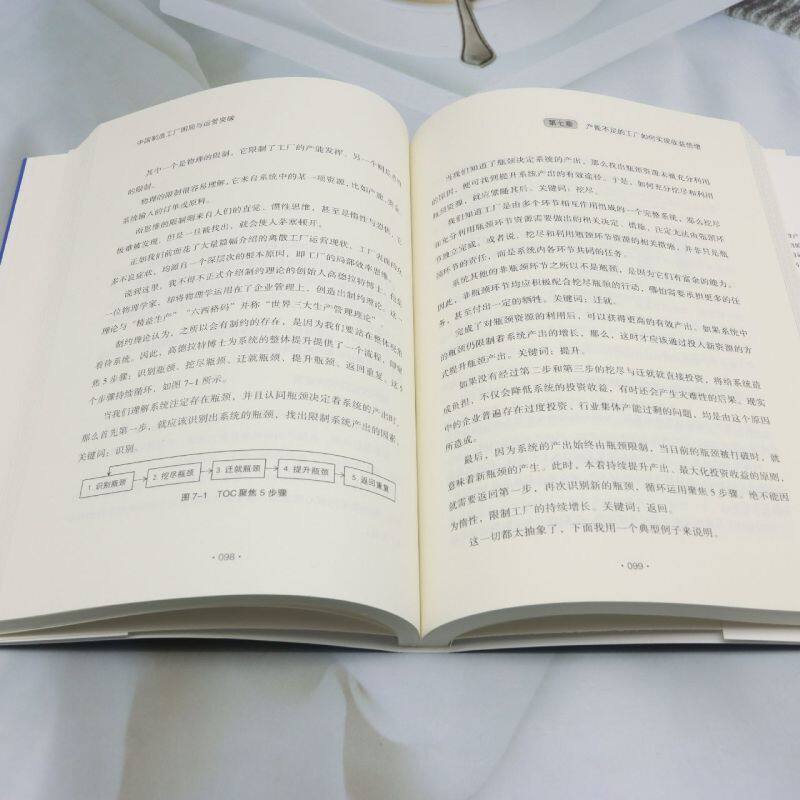 中国制造工厂困局与运营突破
其中一个是物理的限制，它限制了工厂的产能发挥。另一个则是者性
的限制。
物理的限制很容易理解，它来自系统中的某一项资源，比如产能、资金、
系统输入的订单或原料。
而思维的限制则来自人们的直觉、惯性思维，甚至是悟性与恐惧，它
极难被发现，但是一旦被找出，就会使人茅塞顿开。
正如我们前面花了大量篇幅介绍的离散工厂运营现状，工厂表现
多不良症状，均源自一个深层次的根本原因，即工厂的局部效率思维。
说到这里，我不得不正式介绍制约理论的创始人高德拉特博士，
一位物理学家，却将物理学运用在了企业管理上，创造出制约理论。这
理论与“精益生产”“六西格码”并称“世界三大生产管理理论”。
制约理论认为，之所以会有制约的存在，是因为我们要站在整体
看待系统。因此，高德拉特博士为系统的整体提升提供了一个流程，即聚
焦5步骤：识别瓶颈、挖尽瓶颈、迁就瓶颈、提升瓶颈、返回重复，这5
个步骤持续循环，如图7-1所示。
当我们理解系统注定存在瓶颈，并且认同瓶颈决定着系统的产出时，
那么首先第一步，就应该识别出系统的瓶颈，找出限制系统产出的因素，
关键词：识别。
1. 识别瓶颈 2. 挖尽瓶颈 3. 迁就瓶颈 4. 提升瓶颈 5. 返回重复
图7-1 TOC聚焦5步骤
· 098 ·
第七章 产能不足的工厂如何实现收益倍增
当我们知道了瓶颈决定系统的产出，那么找出瓶颈资源未被充分利用
的原因，便可找到提升系统产出的有效途径。于是，如何充分挖尽和利用
瓶颈资源，就应紧随其后。关键词：挖尽。
我们知道工厂是由多个环节相互作用而成的一个完整系统，那么挖尽
和充分利用瓶颈环节资源需要做出的相关决定、措施，注定无法由瓶颈环
节独立完成。或者说，挖尽和利用瓶颈环节资源的相关措施，并非只是瓶
颈环节的责任，而是系统内各环节共同的任务。
系统其他的非瓶颈环节之所以不是瓶颈，是因为它们有富余的能力。
因此，非瓶颈环节均应积极配合挖尽瓶颈的行动，哪怕需要承担更多的任
务，甚至付出一定的牺牲。关键词：迁就。
完成了对瓶颈资源的利用后，可以获得更高的有效产出。如果系统中
的瓶颈仍限制着系统产出的增长，那么，这时才应该通过投入新资源的方
式提升瓶颈产出。关键词：提升。
如果没有经过第二步和第三步的挖尽与迁就就直接投资，将给系统造
成负担，不仅会降低系统的投资收益，有时还会产生灾难性的后果。现实
中的企业普遍存在过度投资、行业集体产能过剩的问题，均是由这个原因
所造成。
最后，因为系统的产出始终由瓶颈限制，当目前的瓶颈被打破时，就
意味着新瓶颈的产生。此时，本着持续提升产出、最大化投资收益的原则，
就需要返回第一步，再次识别新的瓶颈，循环运用聚焦5步骤。绝不能因
为惰性，限制工厂的持续增长。关键词：返回。
这一切都太抽象了，下面我用一个典型例子来说明。
· 099 ·